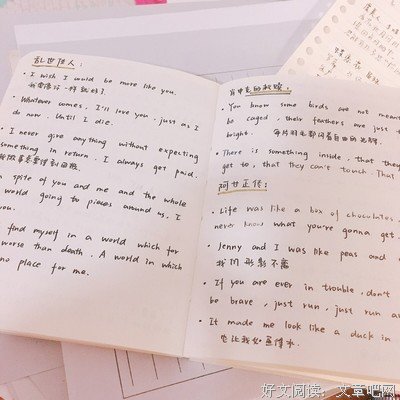 乱世佳人：
· I wish I could be more like you.
我要像你一样就好了
· Whatever comes, I'll love you, just as I
do now. Until I die.
I never give anything without expecting
something in return. I always get paid.
spite of you and me and the whole
world going to pieces around us, I
you
find myself in a world which for
worse than death. A world in which
no place for me.
· You know some birds are not mean
be caged, their feathers are just t
bright.
· There is something inside, that they
get to, that they can't touch. That
阿甘正传：
· Life was like a box of chocolates,
never know what you're gonna get.
· Jenny and I was like peas and
我们形影不离
· If you are ever in trouble, don't
be brave, just run, just run aw
· It made me look like a duck in
也让我如鱼得水.
好文阅读：文章吧网